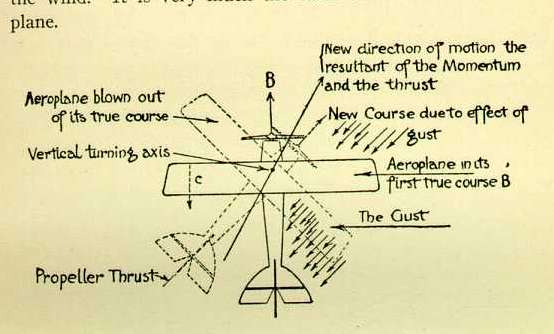 the wind. It is very much the
plane.
New direction of motion the
resultant of the Momentum
and the thrust
B
Aeroplane blown out
of its true course
New Course due to effect of
gust
Vertical turning axis
Aeroplane in its
first true course B
c
The Gust
Propeller Thrust